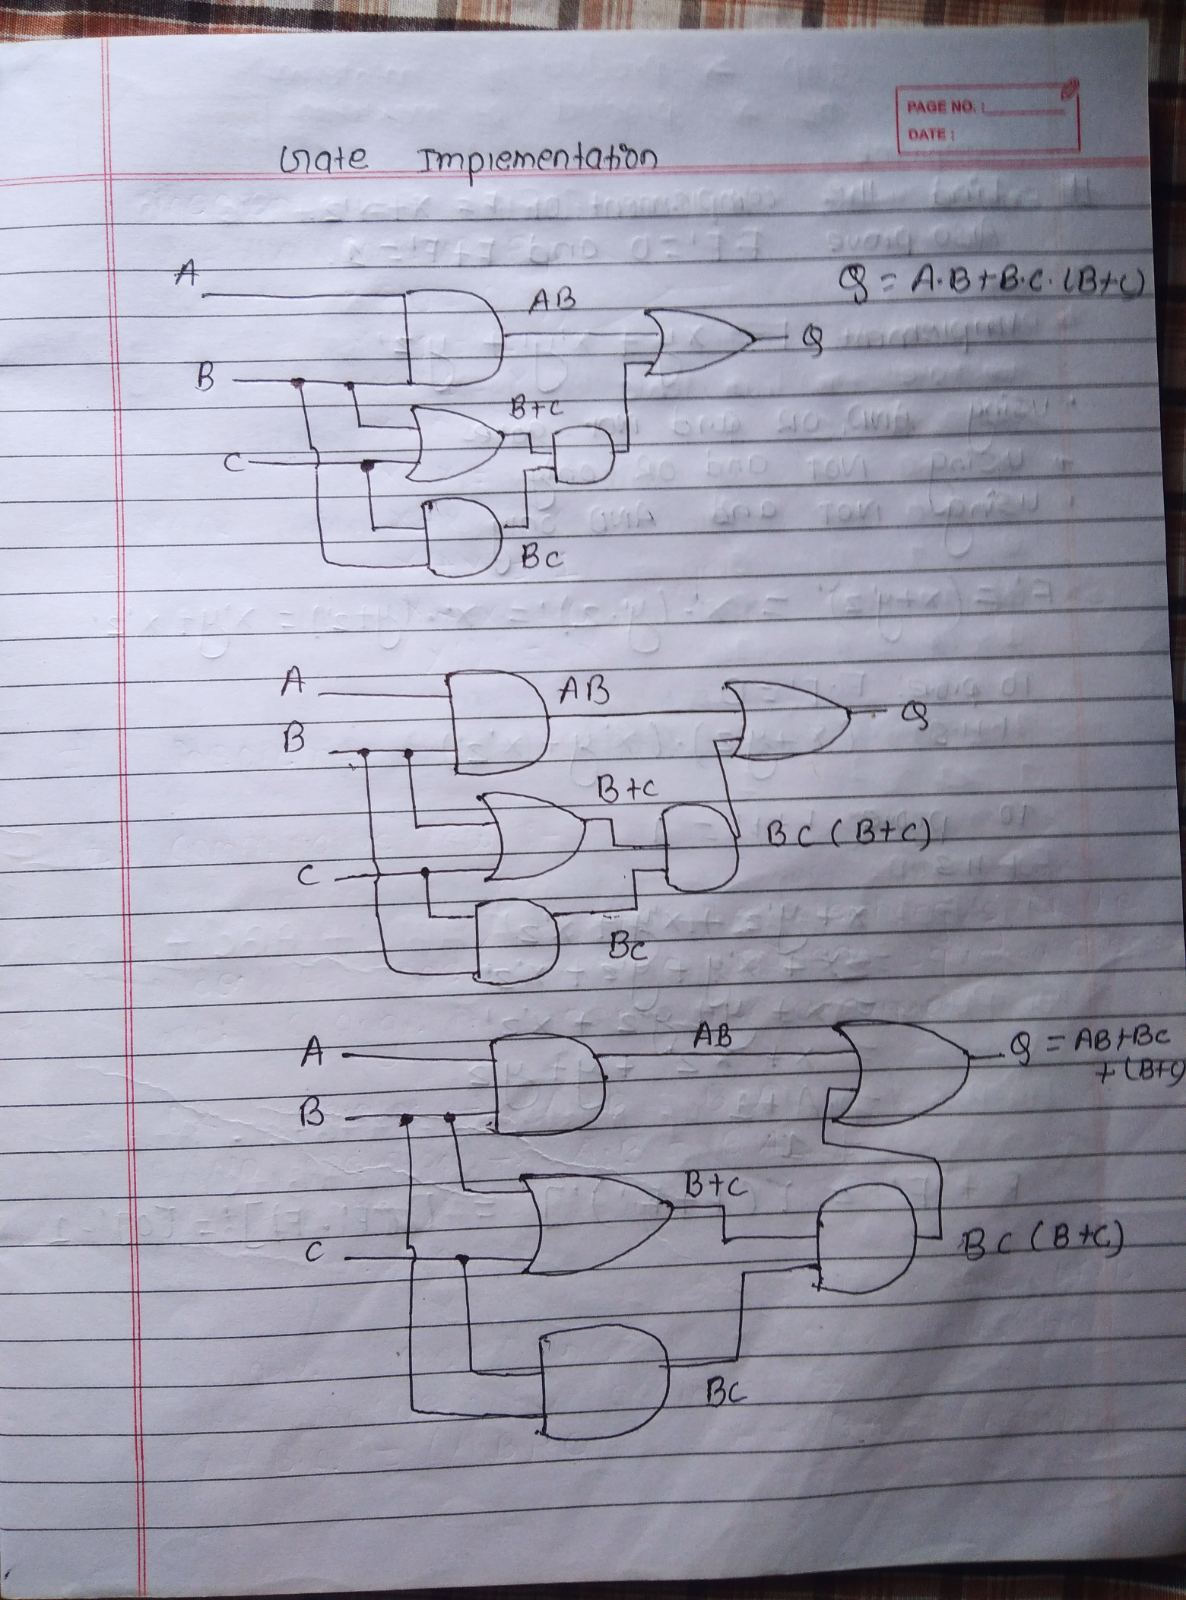 PAGE NO. :
DATE :
Gate Implementation
A
AB
Q = A.B+B.C.(B+C)
Q
B
B+C
C
BC
A
AB
Q
B
B+C
BC (B+C)
C
BC
A
AB
Q = AB+BC
+(B+C)
B
B+C
C
BC (B+C)
BC